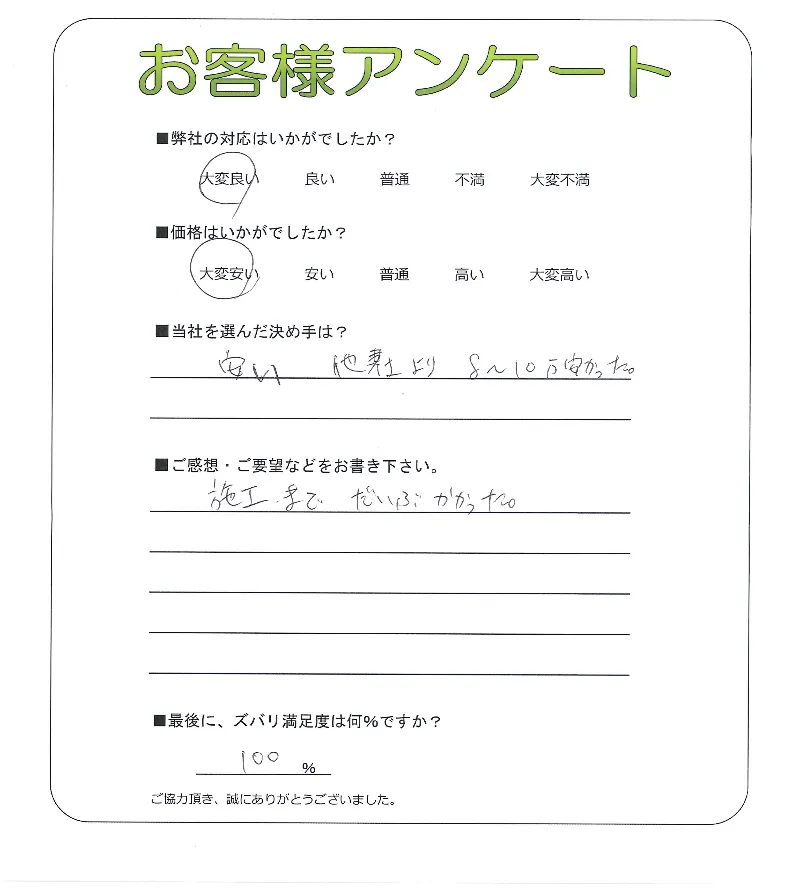 お客様アンケート
■弊社の対応はいかがでしたか？
大変良い 良い 普通 不満 大変不満
■価格はいかがでしたか？
大変安い 安い 普通 高い 大変高い
■当社を選んだ決め手は？
安い 他業土より 8〜10万安かった。
■ご感想・ご要望などをお書き下さい。
施工まで だいぶかかった。
■最後に、ズバリ満足度は何%ですか？
100 %
ご協力頂き、誠にありがとうございました。